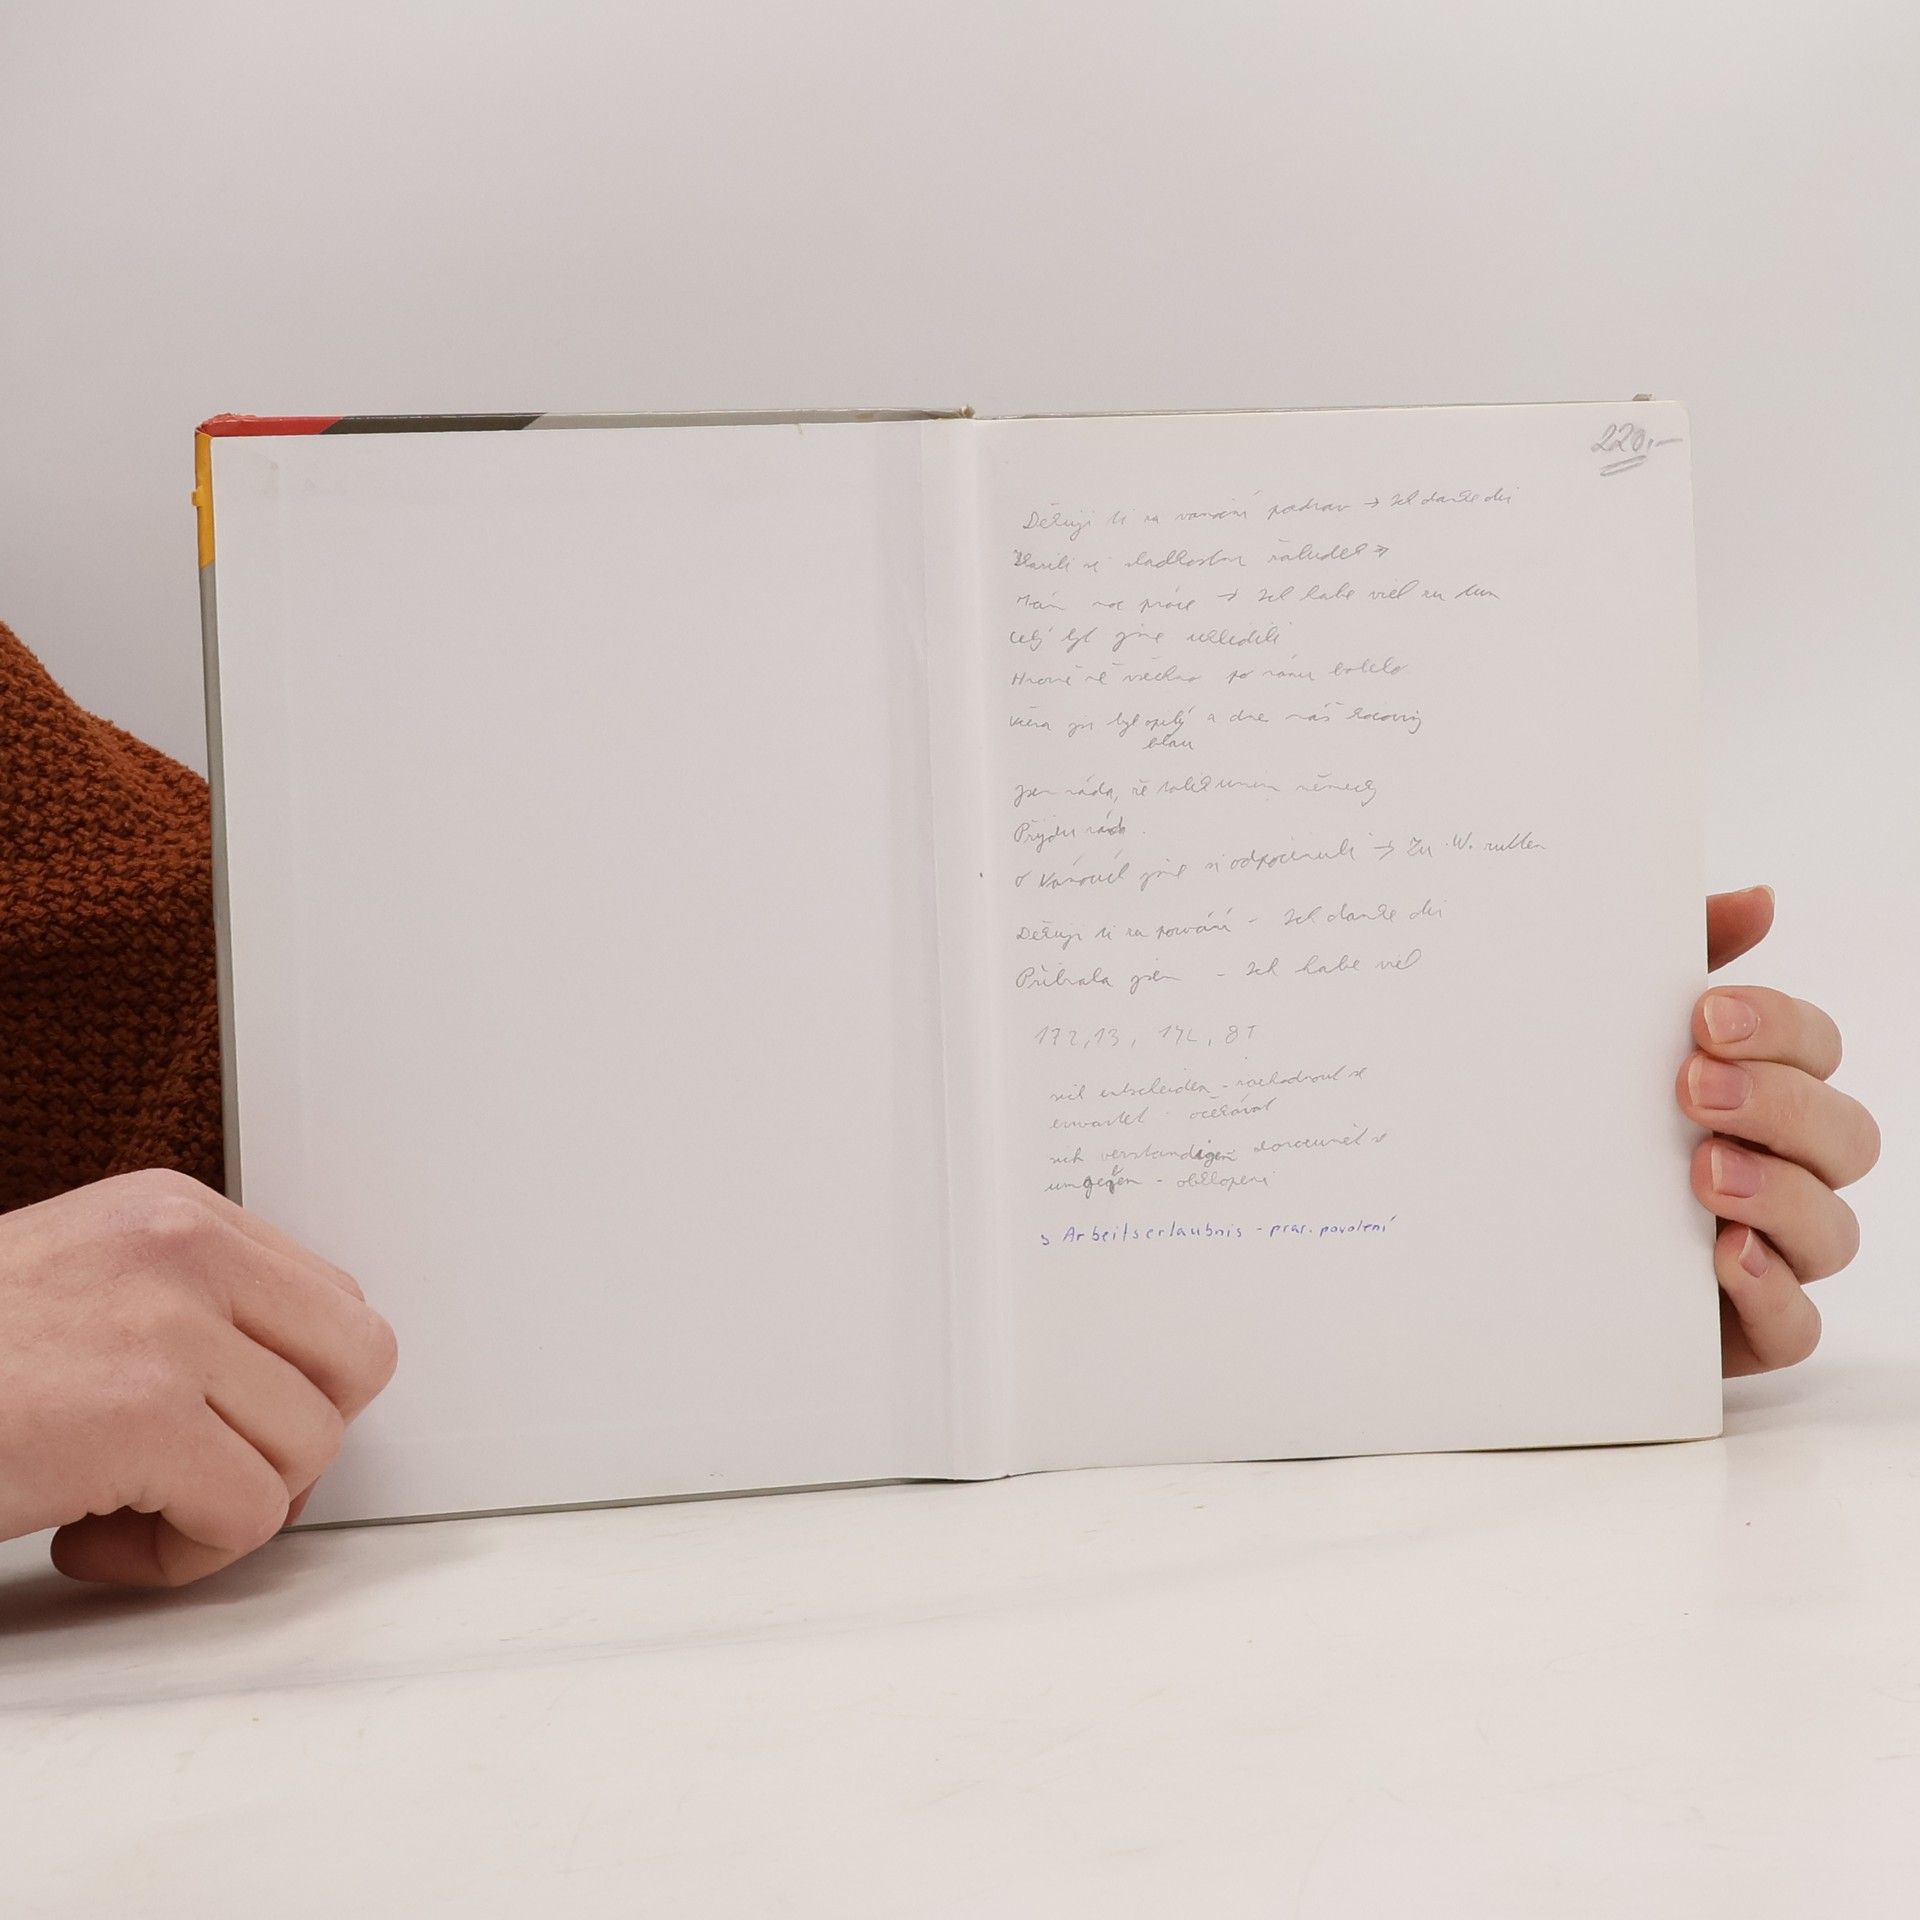 220,-
Děkuji ti za vánoční pozdrav → Ich danke dir
si žaludek →
Mám moc práce → Ich habe viel zu tun
Celý byt jsme uklidili
Hrozně mě všechno po ránu bolelo
Včera jsi byl opilý a dnes máš kocoviny
blau
Jsem ráda, že tolik umím německy
Přijdu rád
O Vánocích jsme si odpočinuli → Zu W. ruhten
Děkuji ti za pozvání - Ich danke dir
Přibrala jsem - Ich habe viel
172, 13,
sich entscheiden - rozhodnout se
erwartet - očekávat
sich verständigen dorozumět se
umgeben - obklopení
Arbeitserlaubnis - prac. povolení